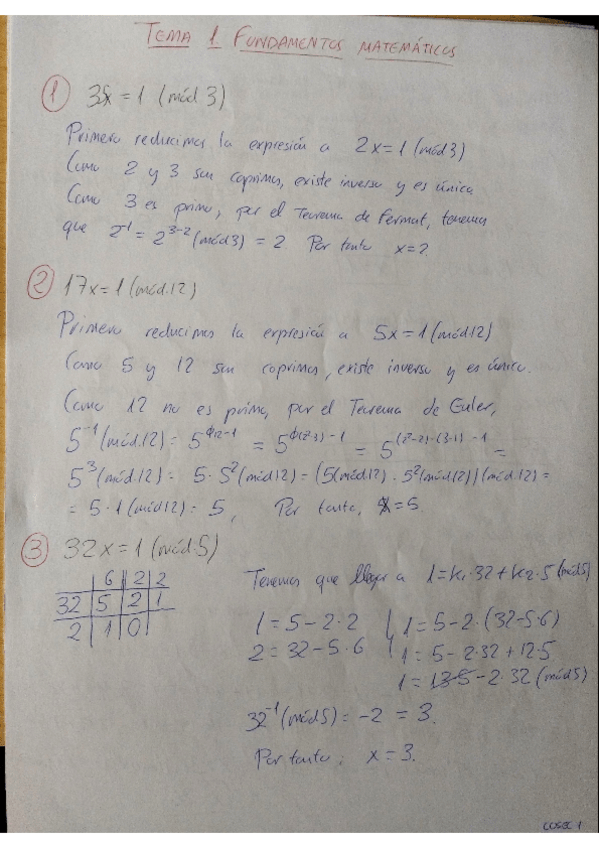 TEMA 1 FUNDAMENTOS MATEMÁTICOS
① 35x = 1 (mód 3)
Primero reducimos la expresión a 2x = 1 (mód 3)
Como 2 y 3 son coprimos, existe inverso y es único
Como 3 es primo, por el Teorema de Fermat, tenemos
que 2⁻¹ = 2³⁻² (mód 3) = 2. Por tanto x = 2.
② 17x = 1 (mód. 12)
Primero reducimos la expresión a 5x = 1 (mód 12)
Como 5 y 12 son coprimos, existe inverso y es único.
Como 12 no es primo, por el Teorema de Euler,
5⁻¹ (mód. 12) = 5^(Φ12-1) = 5^(Φ(2²·3)-1) = 5^((2²-2)·(3-1)-1) =
5³ (mód. 12) = 5·5² (mód 12) = (5 (mód 12) · 5² (mód 12)) (mód 12) =
= 5·1 (mód 12) = 5, Por tanto, x = 5.
③ 32x = 1 (mód. 5)
6 2 2
32 5 2 1
2 1 0
Tenemos que llegar a 1 = k₁·32 + k₂·5 (mód 5)
1 = 5 - 2·2
2 = 32 - 5·6
1 = 5 - 2·(32 - 5·6)
1 = 5 - 2·32 + 12·5
1 = 13·5 - 2·32 (mód 5)
32⁻¹ (mód 5) = -2 = 3.
Por tanto, x = 3.